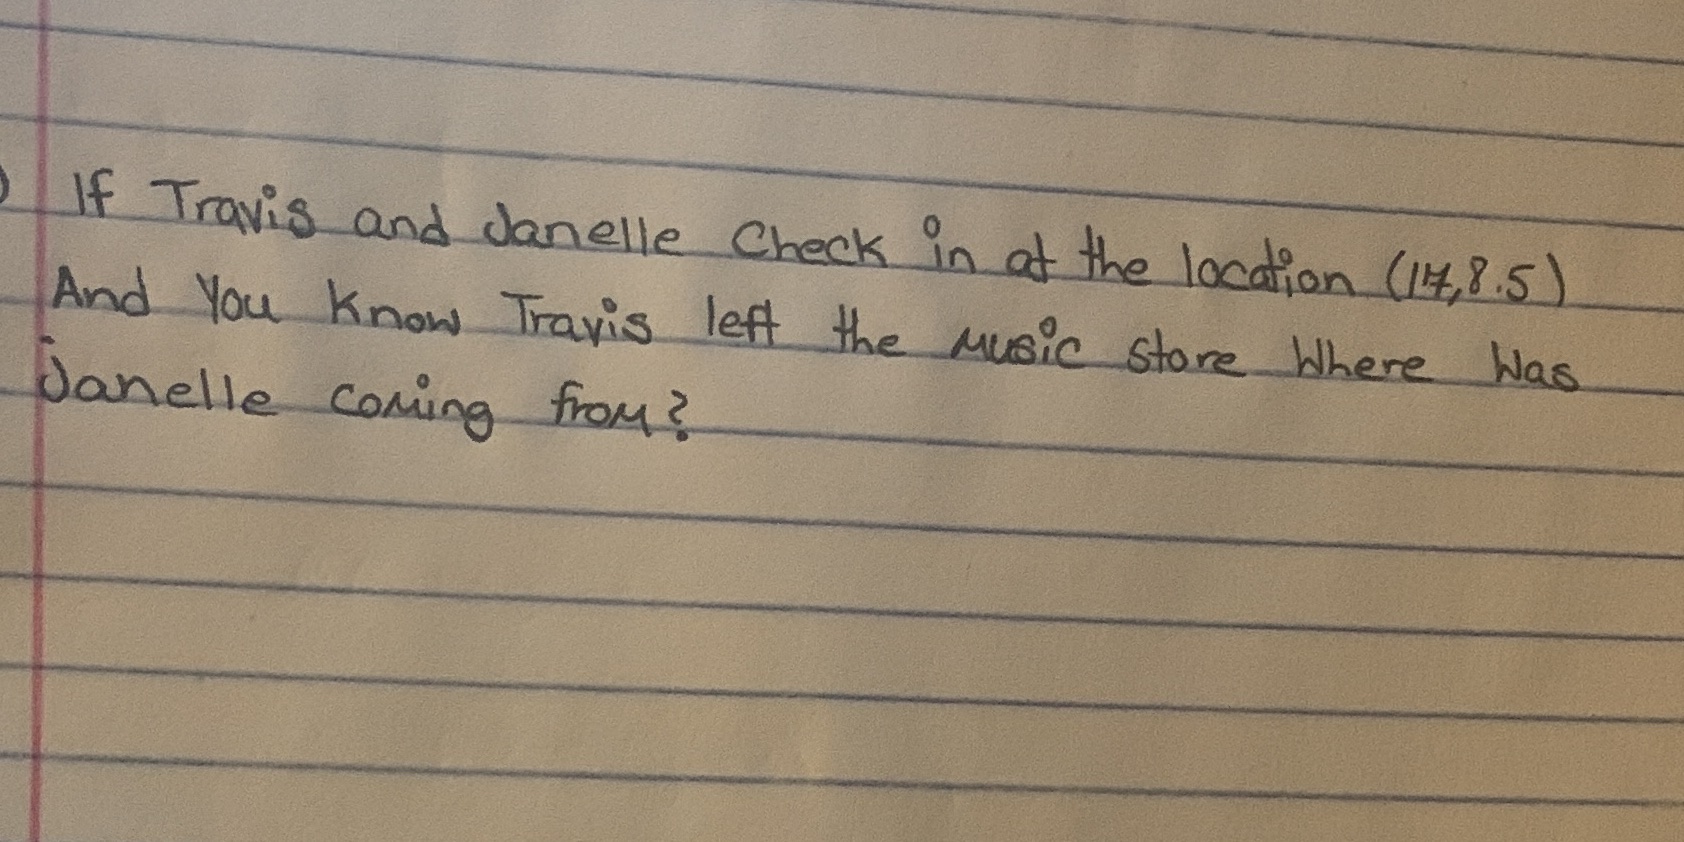 ) If Travis and Janelle Check in at the location (17,8.5)
And You Know Travis left the Music Store Where Was
Janelle coming from?